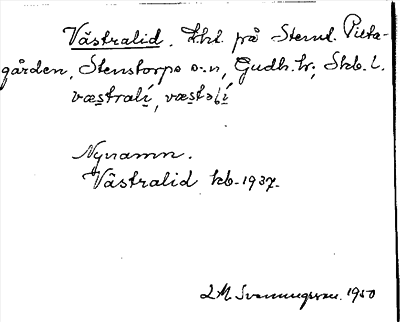 Västralid. Lht. på Stemt. Pieta-
gården, Stenstorps s:n, Gudh. hr; Skb. l.
væstralí, væstəlí
Nynamn.
Västralid kb. 1937.
L M Svenungsson. 1950